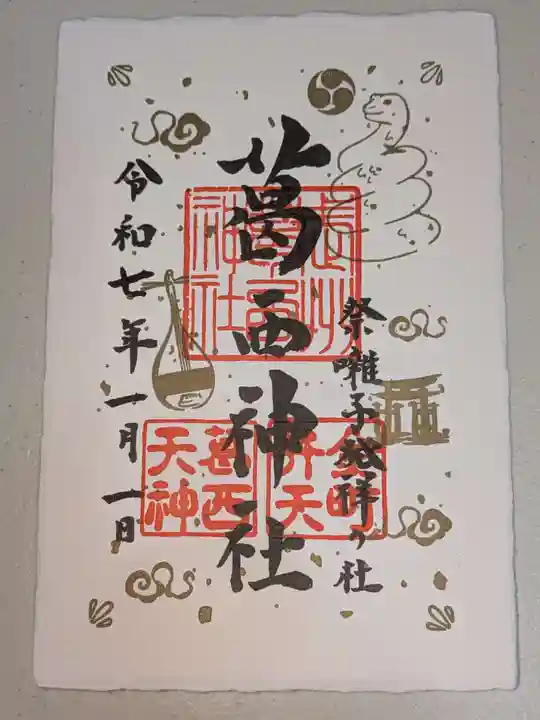 祭囃子発祥の社
葛西神社
令和七年一月一日
武州葛西神社
金町弁天
葛西天神